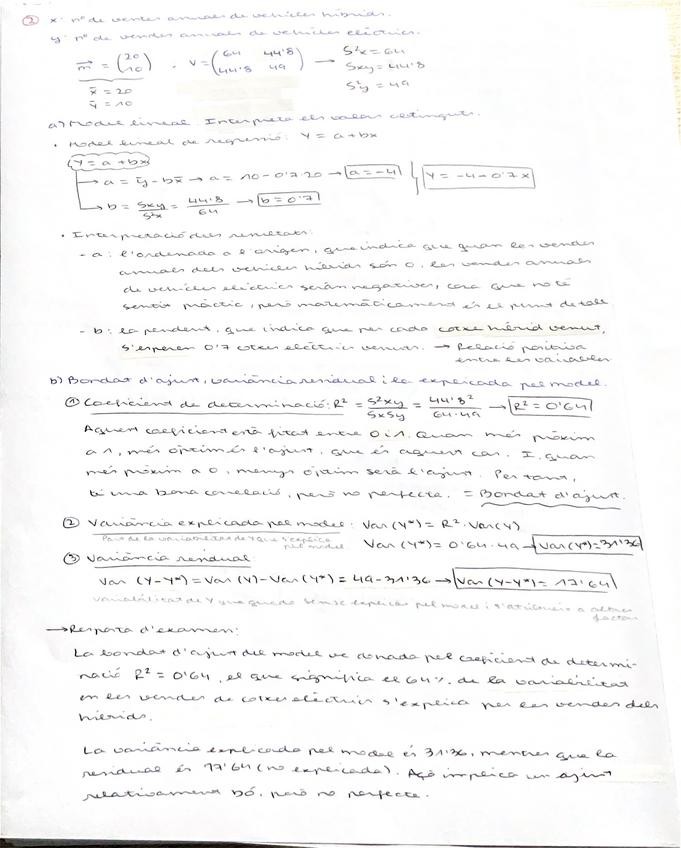 ② x: nº de ventes anuals de vehicles híbrids.
y: nº de vendes anuals de vehicles elèctrics.
m = (20 10) . V = (64 44'8 44'8 49) → S²x = 64
Sxy = 44'8
S²y = 49
x̄ = 20
ȳ = 10
a) Model lineal. Interpreta els valors obtinguts.
· Model lineal de regressió: Y = a + bx
Y = a + bx
→ a = ȳ - bx̄ → a = 10 - 0'7·20 → a = -4 Y = -4 - 0'7x
→ b = Sxy/S²x = 44'8/64 → b = 0'7
· Interpretació dels resultats:
- a: l'ordenada a l'origen, que indica que quan les vendes
anuals dels vehicles híbrids són 0, les vendes anuals
de vehicles elèctrics seràn negatives, cosa que no té
sentit pràctic, però matemàticament és el punt de tall
- b: la pendent, que indica que per cada cotxe híbrid venut,
s'esperen 0'7 cotxes elèctrics venuts. → Relació positiva
entre les variables
b) Bondat d'ajust, variància residual i la explicada pel model.
① Coeficient de determinació: R² = S²xy/SxSy = 44'8²/64·49 → R² = 0'64
Aquest coeficient està fitat entre 0 i 1. Quan més pròxim
a 1, més òptim és l'ajust, que és aquest cas. I, quan
més pròxim a 0, menys òptim serà l'ajust. Per tant,
hi ha una bona correlació, però no perfecta. = Bondat d'ajust.
② Variància explicada pel model: Var (Y*) = R² · Var(Y)
Part de la variabilitat de Y que s'explica
pel model
Var (Y*) = 0'64 · 49 → Var (Y*) = 31'36
③ Variància residual:
Var (Y-Y*) = Var (Y) - Var (Y*) = 49 - 31'36 → Var (Y-Y*) = 17'64
Variabilitat de Y que queda sense explicar pel model i s'atribueix a altres
factors
→ Resposta d'examen:
La bondat d'ajust del model ve donada pel coeficient de determi-
nació R² = 0'64, el que significa el 64% de la variabilitat
en les vendes de cotxes elèctrics s'explica per les vendes dels
híbrids.
La variància explicada pel model és 31'36, mentres que la
residual és 17'64 (no explicada). Açò implica un ajust
relativament bó, però no perfecte.